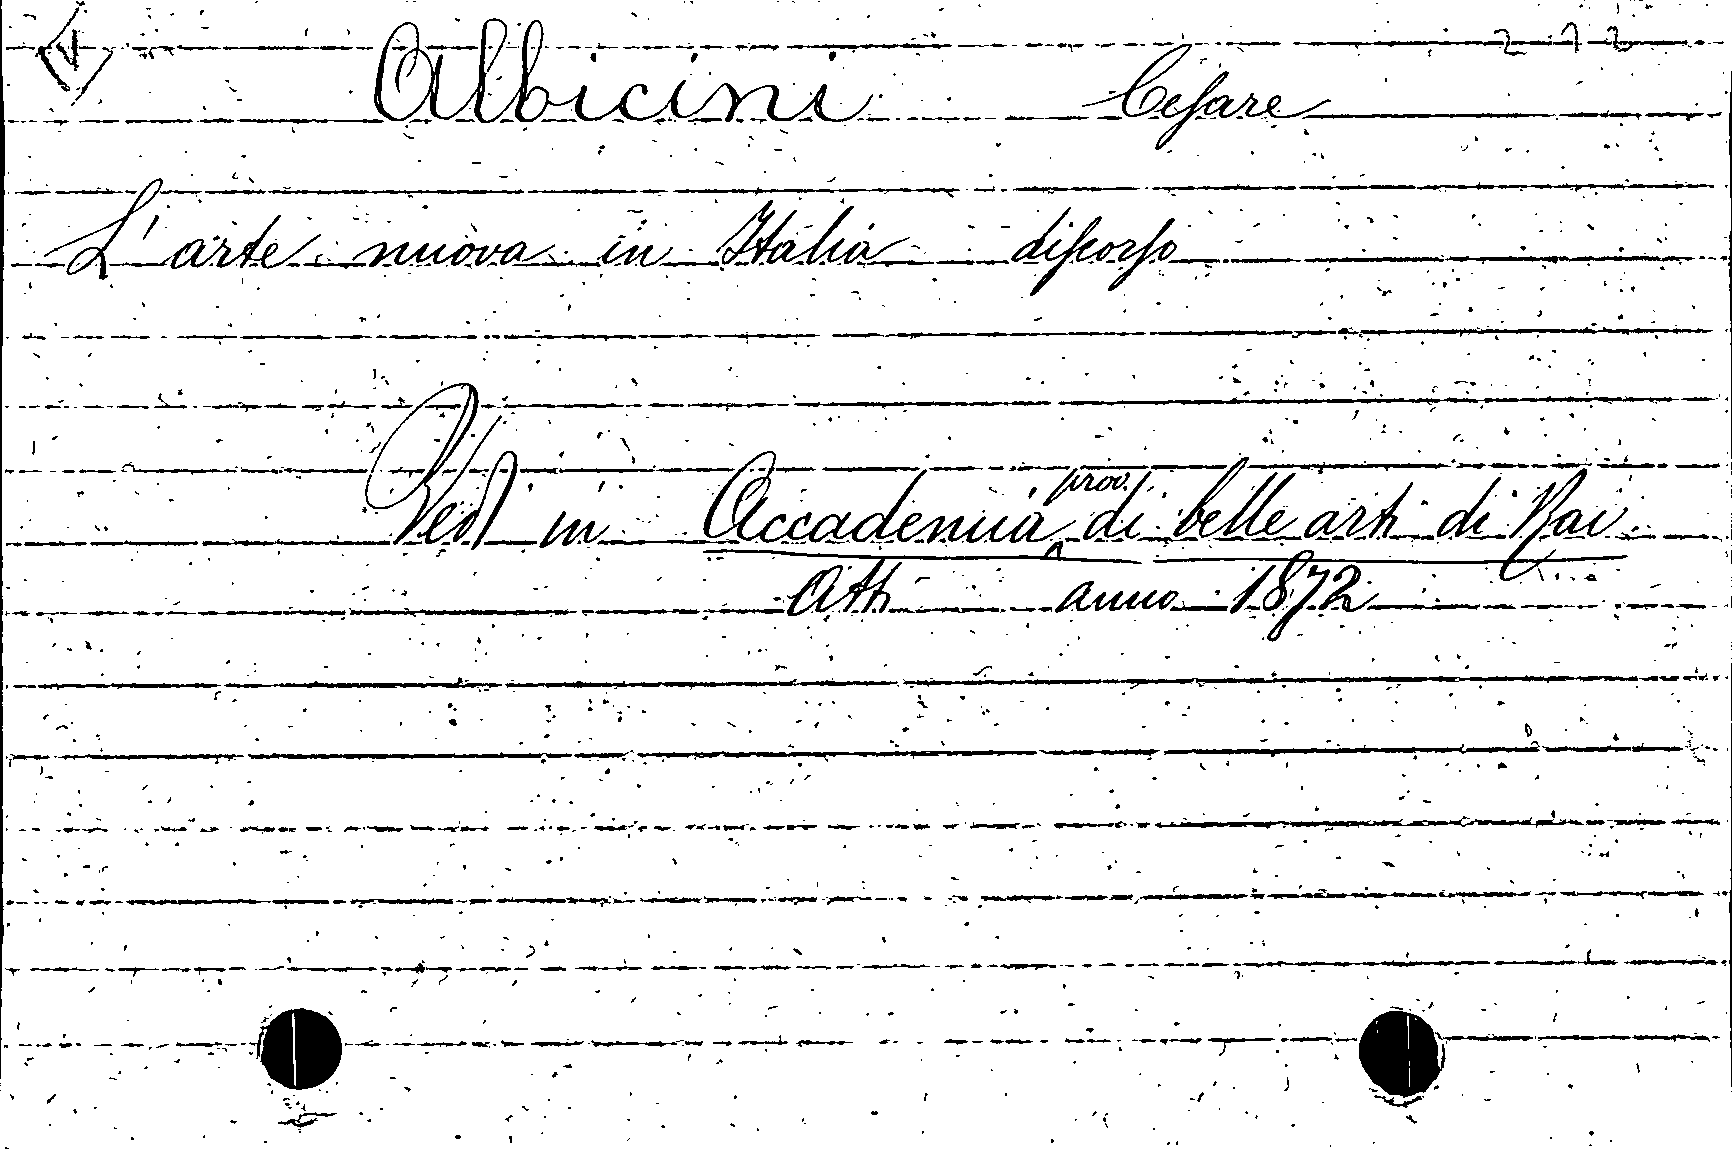 V 272
Albicini Cesare
L'arte nuova in Italia discorso
Vedi in Accademia prov. di belle arti di Rav.
Atti anno 1872